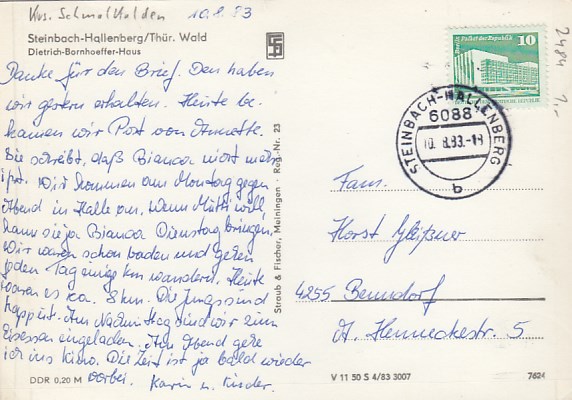 Krs. Schmalkalden 10.8.83
Steinbach-Hallenberg/Thür. Wald
Dietrich-Bornhoeffer-Haus
Danke für den Brief. Den haben
wir gestern erhalten. Heute be-
kamen wir Post von Annette.
Sie schreibt, daß Bianca nicht mehr
ißt. Wir kommen am Montag gegen
Abend in Halle an. Wenn Mutti will,
kann sie ja Bianca Dienstag bringen.
Wir waren schon baden und gehen
jeden Tag einige km wandern. Heute
waren es ca. 8 km. Die Jungs sind
happert. Am Nachmittag sind wir zum
Eisessen eingeladen. Am Abend gehe
ich ins Kino. Die Zeit ist ja bald wieder
vorbei. Karin u. Kinder.
DDR 0,20 M
Straub & Fischer, Meiningen · Reg.-Nr. 23
10
STEINBACH-HALLENBERG
6088
10.8.83.-18
b
2484 1,-
Fam.
Horst Gleißner
4255 Benndorf
A. Henneckestr. 5
V 11 50 S 4/83 3007
7624